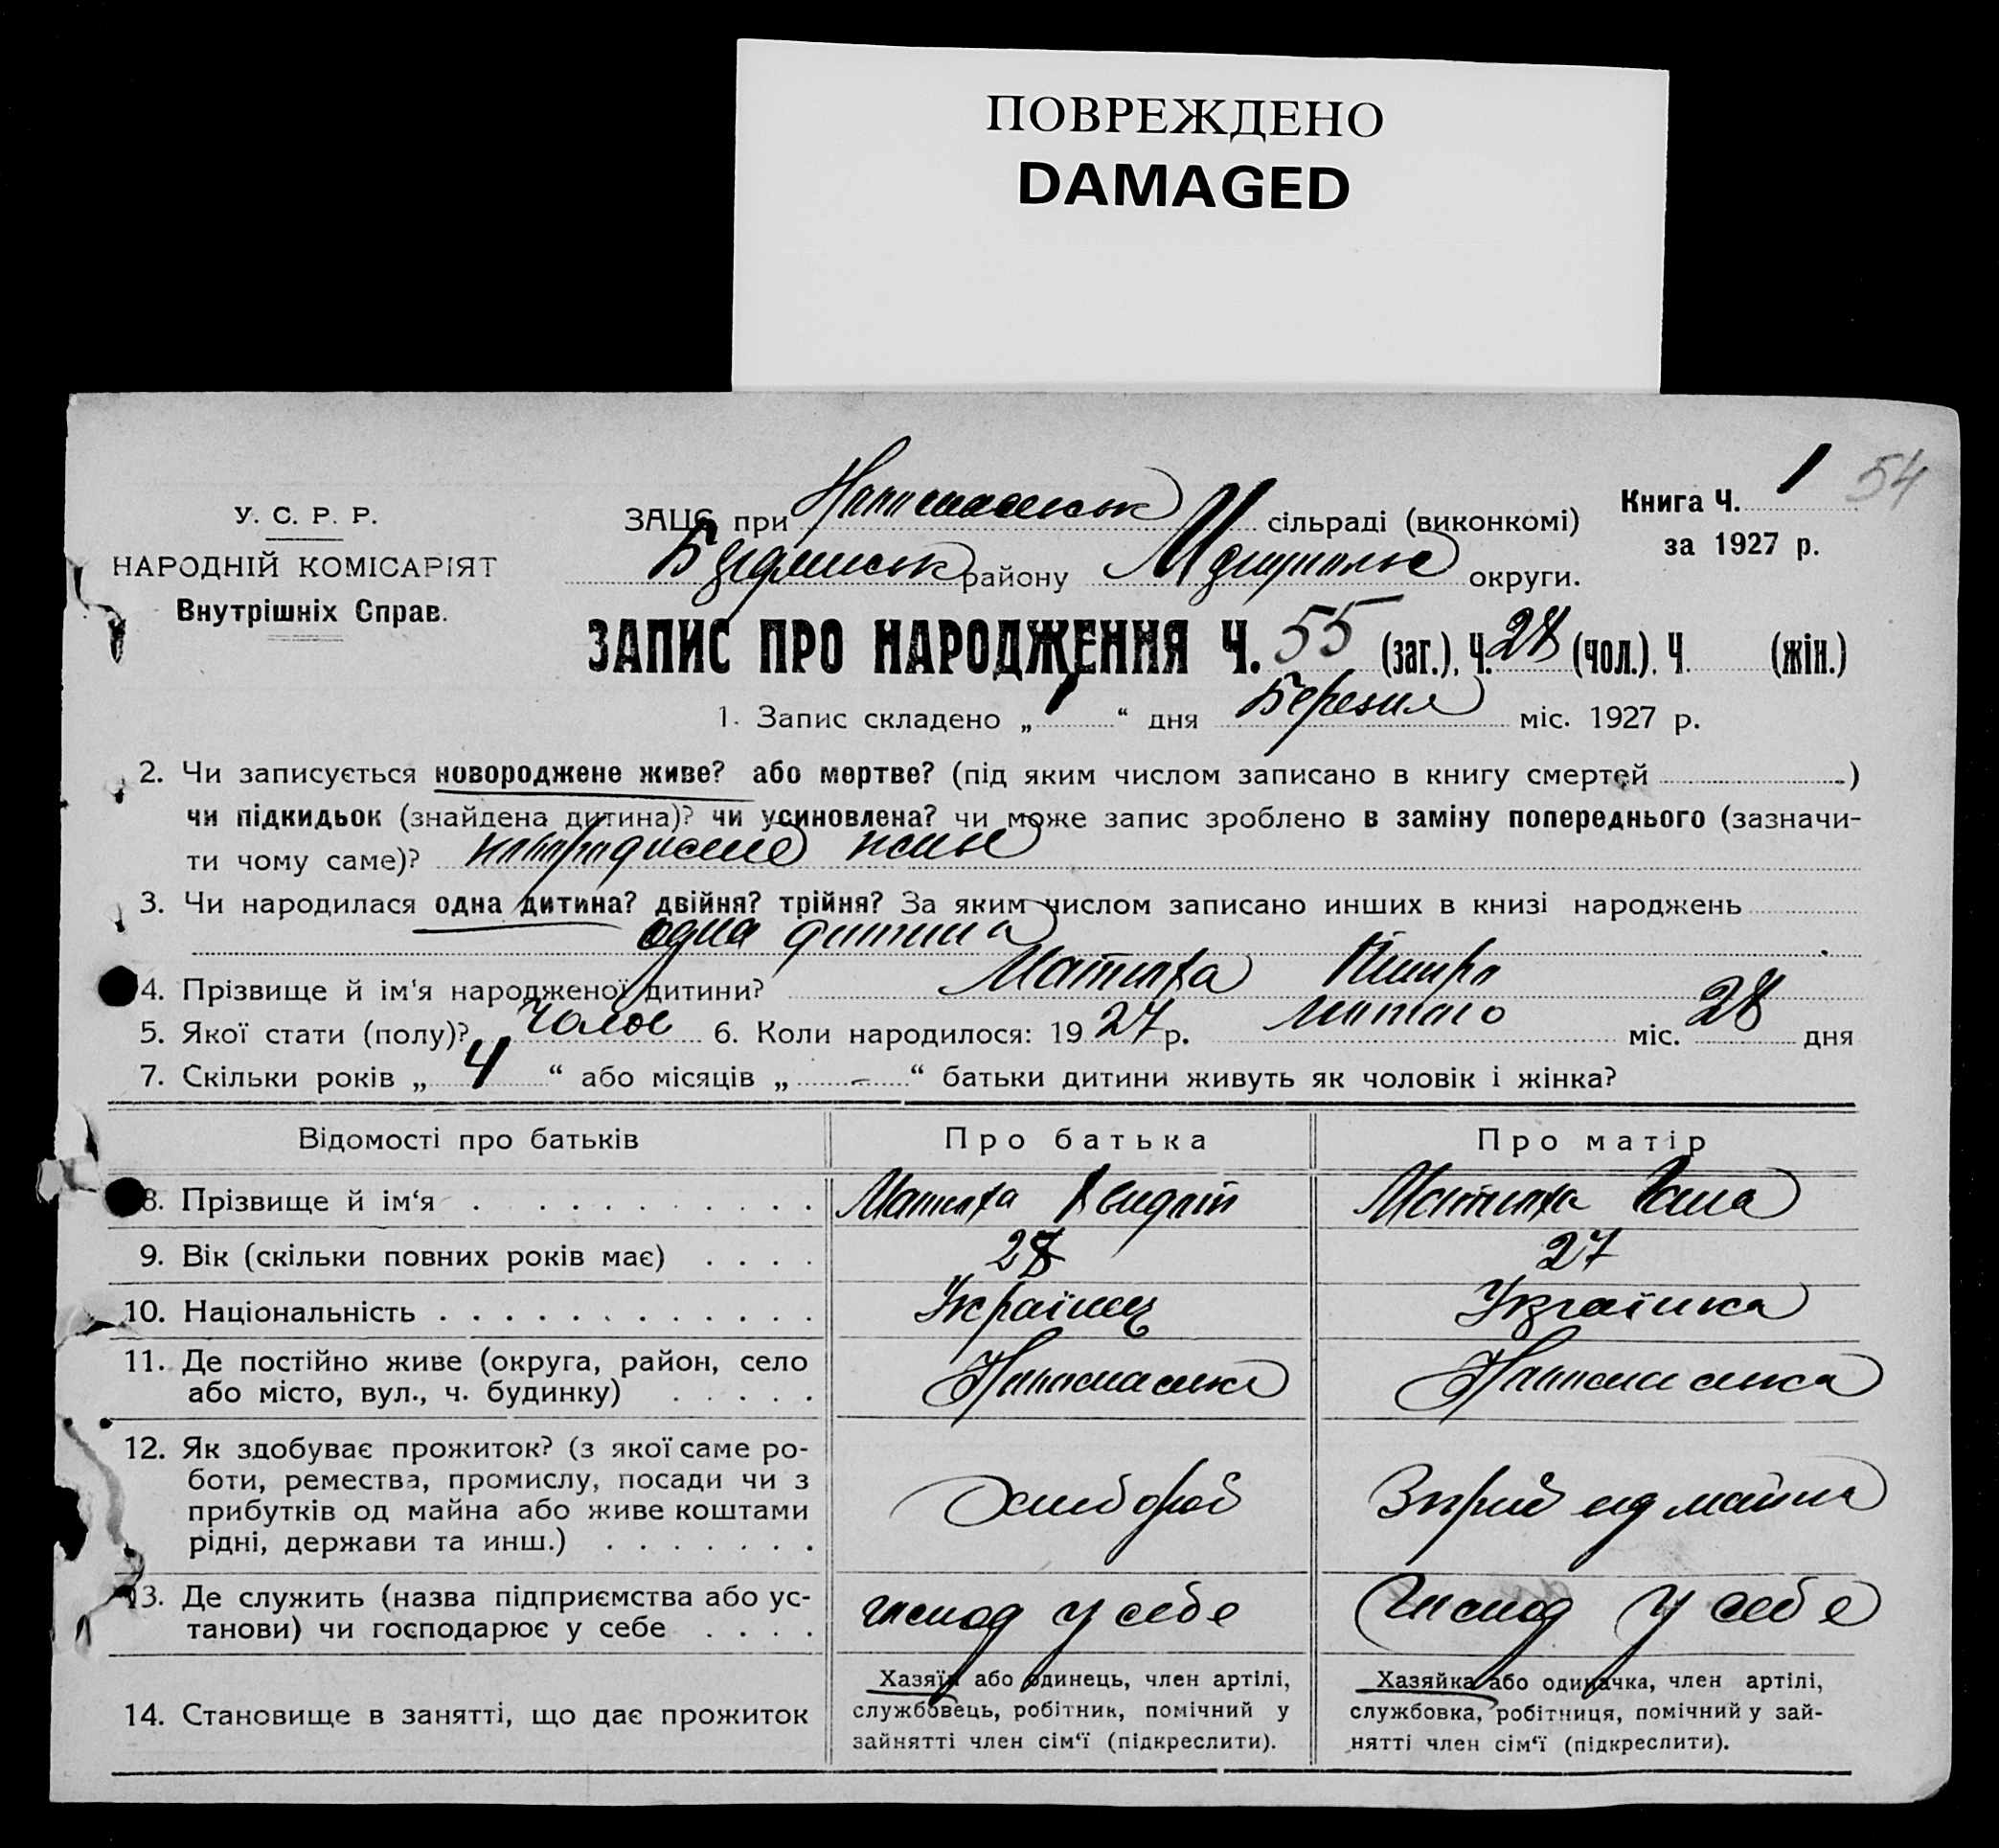 ПОВРЕЖДЕНО
DAMAGED
Книга Ч. 1 54
У. С. Р. Р. ЗАЦС при сільраді (виконкомі)
за 1927 р.
НАРОДНІЙ КОМІСАРІЯТ району округи.
Внутрішніх Справ.
ЗАПИС ПРО НАРОДЖЕННЯ Ч. 55 (заг.), Ч. 28 (чол.), Ч. (жін.)
1. Запис складено „ 1 “ дня Березня міс. 1927 р.
2. Чи записується новороджене живе? або мертве? (під яким числом записано в книгу смертей )
чи підкидьок (знайдена дитина)? чи усиновлена? чи може запис зроблено в заміну попереднього (зазначи-
ти чому саме)?
3. Чи народилася одна дитина? двійня? трійня? За яким числом записано инших в книзі народжень
одна дитина
4. Прізвище й ім'я народженої дитини?
5. Якої стати (полу)? 6. Коли народилося: 1927 р. лютого міс. 28 дня
7. Скільки років „ 4 “ або місяців „ - “ батьки дитини живуть як чоловік і жінка?
Відомості про батьків Про батька Про матір
8. Прізвище й ім'я
9. Вік (скільки повних років має) 28 27
10. Національність Українец Українка
11. Де постійно живе (округа, район, село
або місто, вул., ч. будинку)
12. Як здобуває прожиток? (з якої саме ро-
боти, ремества, промислу, посади чи з
прибутків од майна або живе коштами
рідні, держави та инш.) Хлибороб
13. Де служить (назва підприємства або ус-
танови) чи господарює у себе у себе у себе
Хазяїн або одинець, член артілі, Хазяйка або одиначка, член артілі,
14. Становище в занятті, що дає прожиток службовець, робітник, помічний у службовка, робітниця, помічний у зай-
зайнятті член сім'ї (підкреслити). нятті член сім'ї (підкреслити).